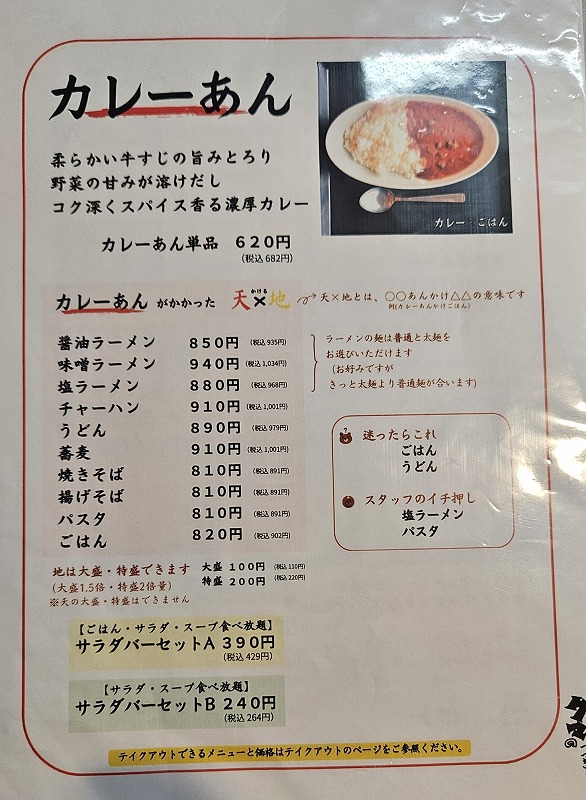 カレーあん
柔らかい牛すじの旨みとろり
野菜の甘みが溶けだし
コク深くスパイス香る濃厚カレー
カレー×ごはん
カレーあん単品 620円
(税込 682円)
カレーあん がかかった 天×地
かける
天×地とは、〇〇あんかけ△△の意味です
例(カレーあんかけごはん)
醤油ラーメン 850円 (税込 935円)
味噌ラーメン 940円 (税込 1,034円)
塩ラーメン 880円 (税込 968円)
チャーハン 910円 (税込 1,001円)
うどん 890円 (税込 979円)
蕎麦 910円 (税込 1,001円)
焼きそば 810円 (税込 891円)
揚げそば 810円 (税込 891円)
パスタ 810円 (税込 891円)
ごはん 820円 (税込 902円)
ラーメンの麺は普通と太麺を
お選びいただけます
(お好みですが
きっと太麺より普通麺が合います)
迷ったらこれ
ごはん
うどん
スタッフのイチ押し
塩ラーメン
パスタ
地は大盛・特盛できます
(大盛1.5倍・特盛2倍量)
※天の大盛・特盛はできません
大盛 100円 (税込 110円)
特盛 200円 (税込 220円)
【ごはん・サラダ・スープ食べ放題】
サラダバーセットA 390円
(税込 429円)
【サラダ・スープ食べ放題】
サラダバーセットB 240円
(税込 264円)
テイクアウトできるメニューと価格はテイクアウトのページをご参照ください。